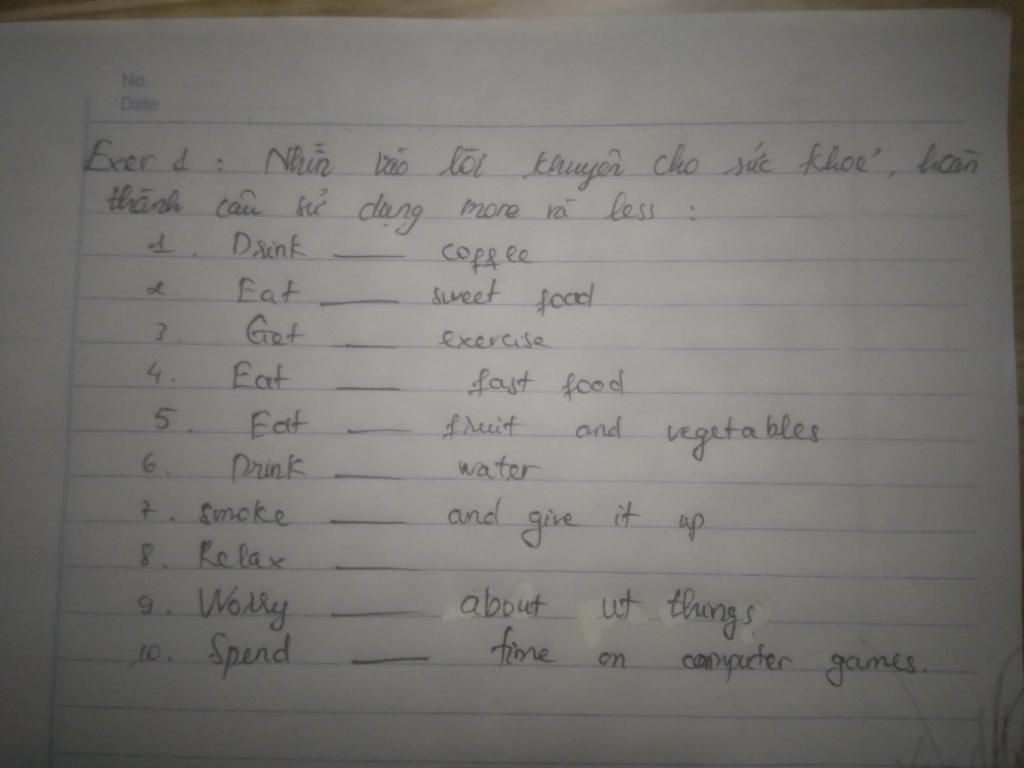 No.
Date
Exer 1 : Nhìn vào lời khuyên cho sức khoẻ, hoàn
thành câu sử dụng more và less :
1. Drink ____ coffee
2 Eat ____ sweet food
3. Get ____ exercise
4. Eat ____ fast food
5. Eat ____ fruit and vegetables
6. Drink ____ water
7. smoke ____ and give it up
8. Relax ____
9. Worry ____ about things
10. Spend ____ time on computer games.